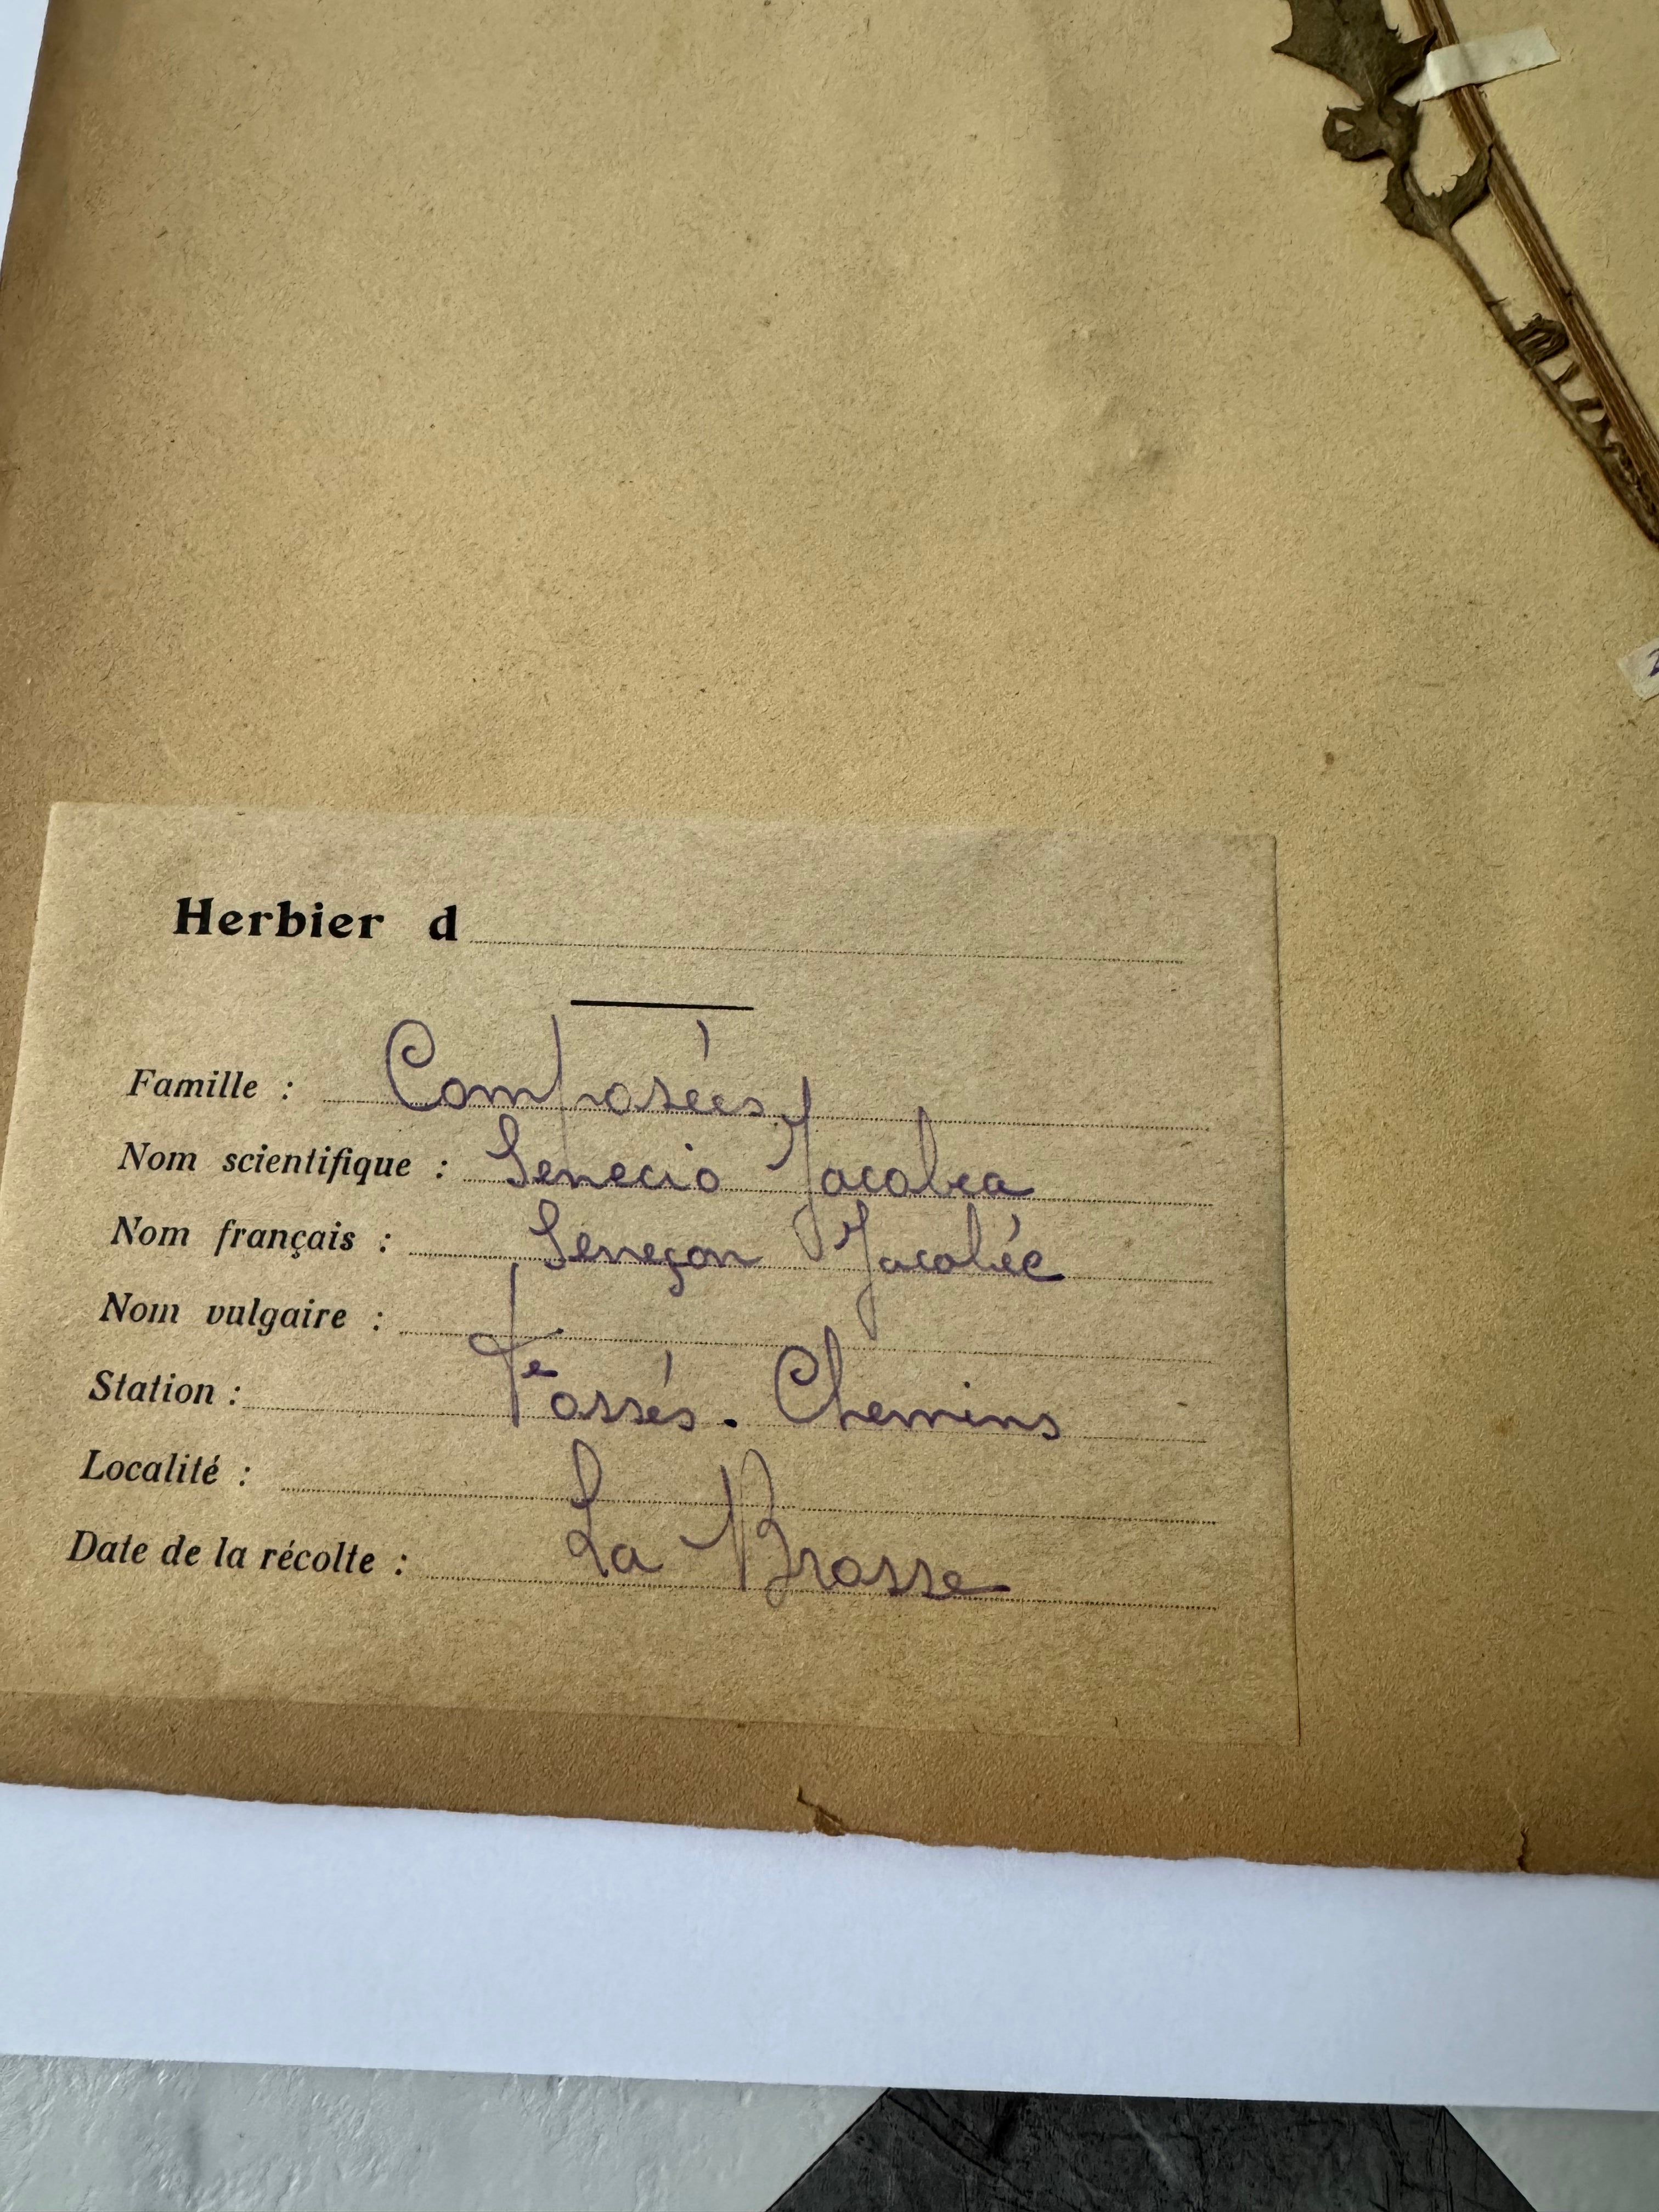 Herbier d
Famille : Composées
Nom scientifique : Senecio Jacobea
Nom français : Seneçon Jacobée
Nom vulgaire :
Station : Fossés. Chemins
Localité :
Date de la récolte : La Brosse